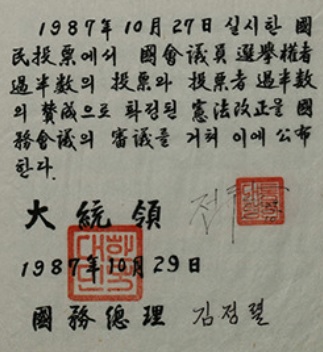 1987年 10月 27日 실시한 國
民投票에서 國會議員 選擧權者
過半数의 投票와 投票者 過半数
의 賛成으로 확정된 憲法改正을 國
務會議의 審議를 거쳐 이에 公布
한다.
大統領
1987年 10月 29日
國務總理 김정렬